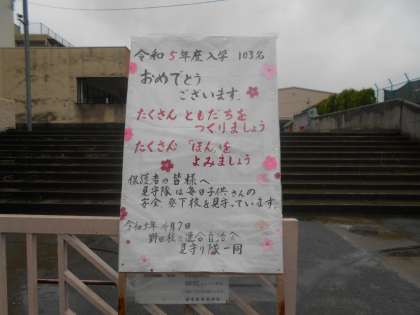 令和5年度入学 103名
おめでとう
ございます。
たくさん ともだちを
つくりましょう
たくさん「ほん」を
よみましょう
保護者の皆様へ
見守隊は毎日子供さんの
安全 登下校を見守っています。
令和5年4月7日
野田校区連合自治会
見守り隊一同